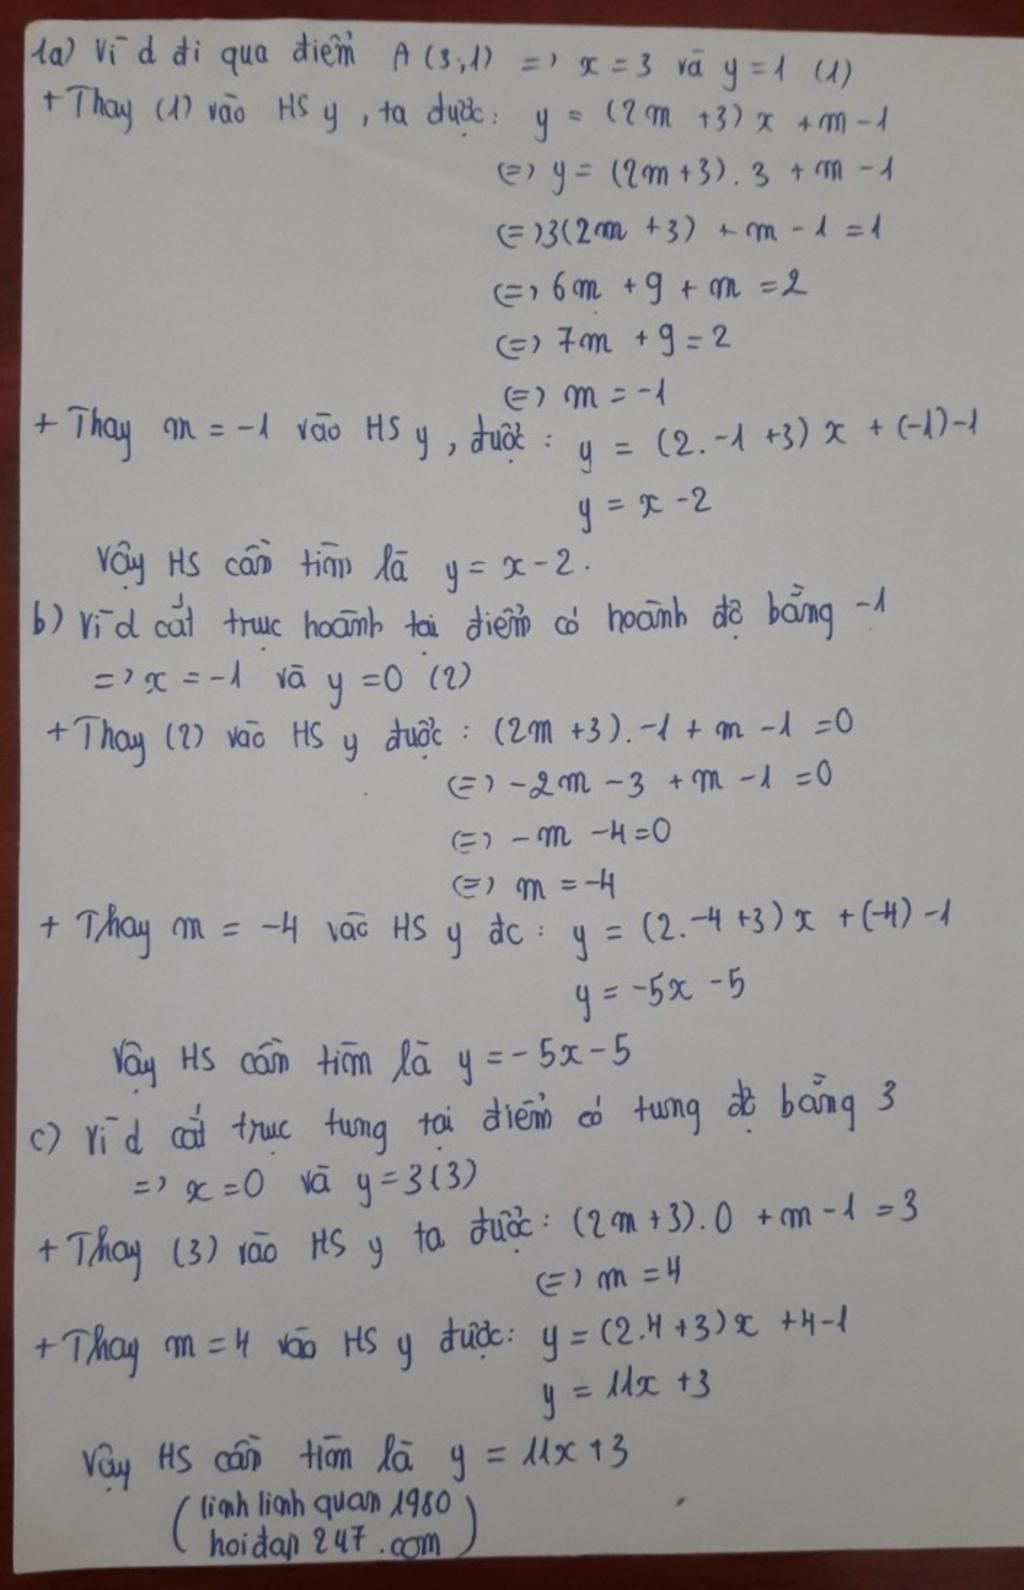 1a) Vì d đi qua điểm A(3;1) => x = 3 và y = 1 (1)
+ Thay (1) vào HS y, ta được: y = (2m +3) x + m - 1
(=) y = (2m+3). 3 + m - 1
(=) 3(2m +3) + m - 1 = 1
(=) 6m + 9 + m = 2
(=) 7m + 9 = 2
(=) m = -1
+ Thay m = -1 vào HS y, được: y = (2.-1 +3) x + (-1)-1
y = x - 2
Vậy HS cần tìm là y = x - 2.
b) Vì d cắt trục hoành tại điểm có hoành độ bằng -1
=> x = -1 và y = 0 (2)
+ Thay (2) vào HS y được: (2m +3).-1 + m - 1 = 0
(=) -2m - 3 + m - 1 = 0
(=) -m - 4 = 0
(=) m = -4
+ Thay m = -4 vào HS y đc: y = (2.-4 +3) x + (-4) -1
y = -5x - 5
Vậy HS cần tìm là y = -5x - 5
c) Vì d cắt trục tung tại điểm có tung độ bằng 3
=> x = 0 và y = 3 (3)
+ Thay (3) vào HS y ta được: (2m+3). 0 + m - 1 = 3
(=) m = 4
+ Thay m = 4 vào HS y được: y = (2.4 +3) x + 4 - 1
y = 11x + 3
Vậy HS cần tìm là y = 11x + 3
(linh linh quan 1980
hoidap 247.com)